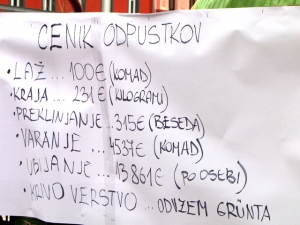 CENIK ODPUSTKOV
• LAŽ ... 100€ (KOMAD)
• KRAJA ... 231€ (KILOGRAMI)
• PREKLINJANJE ... 315€ (BESEDA)
• VARANJE ... 4537€ (KOMAD)
• UBIJANJE ... 13861€ (PO OSEBI)
• KRIVO VERSTVO ... ODVZEM GRÜNTA